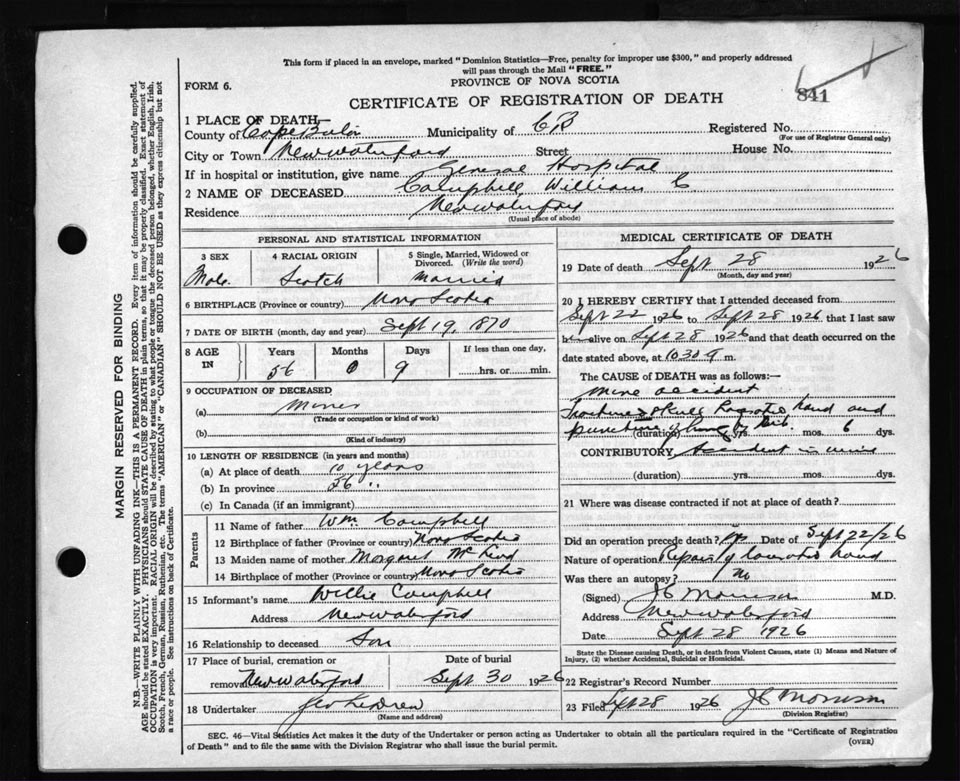 This form if placed in an envelope, marked "Dominion Statistics—Free, penalty for improper use $300," and properly addressed
will pass through the Mail "FREE."
FORM 6.
PROVINCE OF NOVA SCOTIA
CERTIFICATE OF REGISTRATION OF DEATH
841
1 PLACE OF DEATH—
County of Cape Breton Municipality of CB Registered No.
(For use of Registrar General only)
City or Town New waterford Street House No.
If in hospital or institution, give name General Hospital
2 NAME OF DECEASED Campbell William C
Residence New waterford
(Usual place of abode)
PERSONAL AND STATISTICAL INFORMATION
3 SEX 4 RACIAL ORIGIN 5 Single, Married, Widowed or Divorced. (Write the word)
Male Scotch Married
6 BIRTHPLACE (Province or country) Nova Scotia
7 DATE OF BIRTH (month, day and year) Sept 19, 1870
8 AGE IN Years Months Days If less than one day,
56 0 9 hrs. or min.
9 OCCUPATION OF DECEASED
(a) Miner
(Trade or occupation or kind of work)
(b)
(Kind of industry)
10 LENGTH OF RESIDENCE (in years and months)
(a) At place of death 10 years
(b) In province 56 "
(c) In Canada (if an immigrant)
Parents
11 Name of father Wm Campbell
12 Birthplace of father (Province or country) Nova Scotia
13 Maiden name of mother Margaret
14 Birthplace of mother (Province or country) Nova Scotia
15 Informant's name Willie Campbell
Address New waterford
16 Relationship to deceased Son
17 Place of burial, cremation or Date of burial
removal New waterford Sept 30 1926
18 Undertaker Geo LeDrew
(Name and address)
MEDICAL CERTIFICATE OF DEATH
19 Date of death Sept 28 1926
(Month, day and year)
20 I HEREBY CERTIFY that I attended deceased from
Sept 22 1926 to Sept 28 1926 that I last saw
him alive on Sept 28 1926 and that death occurred on the
date stated above, at 10 30 a m.
The CAUSE of DEATH was as follows:—
mine accident
Fracture skull hand and
puncture of
(duration) yrs. mos. 6 dys.
CONTRIBUTORY Accident in mine
(duration) yrs. mos. dys.
21 Where was disease contracted if not at place of death?
Did an operation precede death? yes Date of Sept 22/26
Nature of operation Repair of hand
Was there an autopsy? No
(Signed) JC Morrison M.D.
Address New waterford
Date Sept 28 1926
State the Disease causing Death, or in death from Violent Causes, state (1) Means and Nature of
Injury, (2) whether Accidental, Suicidal or Homicidal.
22 Registrar's Record Number
23 Filed Sept 28 1926 JC Morrison
(Division Registrar)
SEC. 46—Vital Statistics Act makes it the duty of the Undertaker or person acting as Undertaker to obtain all the particulars required in the "Certificate of Registration
of Death" and to file the same with the Division Registrar who shall issue the burial permit.
(OVER)
MARGIN RESERVED FOR BINDING
N.B.—WRITE PLAINLY WITH UNFADING INK—THIS IS A PERMANENT RECORD. Every item of information should be carefully supplied.
AGE should be stated EXACTLY. PHYSICIANS should STATE CAUSE OF DEATH in plain terms, so that it may be properly classified. Exact statement of
OCCUPATION is very important. RACIAL ORIGIN will be described by stating to what people or tongue the deceased person belonged, whether English, Irish,
Scotch, French, German, Russian, Ruthenian, etc. The terms "AMERICAN" or "CANADIAN" SHOULD NOT BE USED as they express citizenship but not
a race or people. See instructions on back of Certificate.